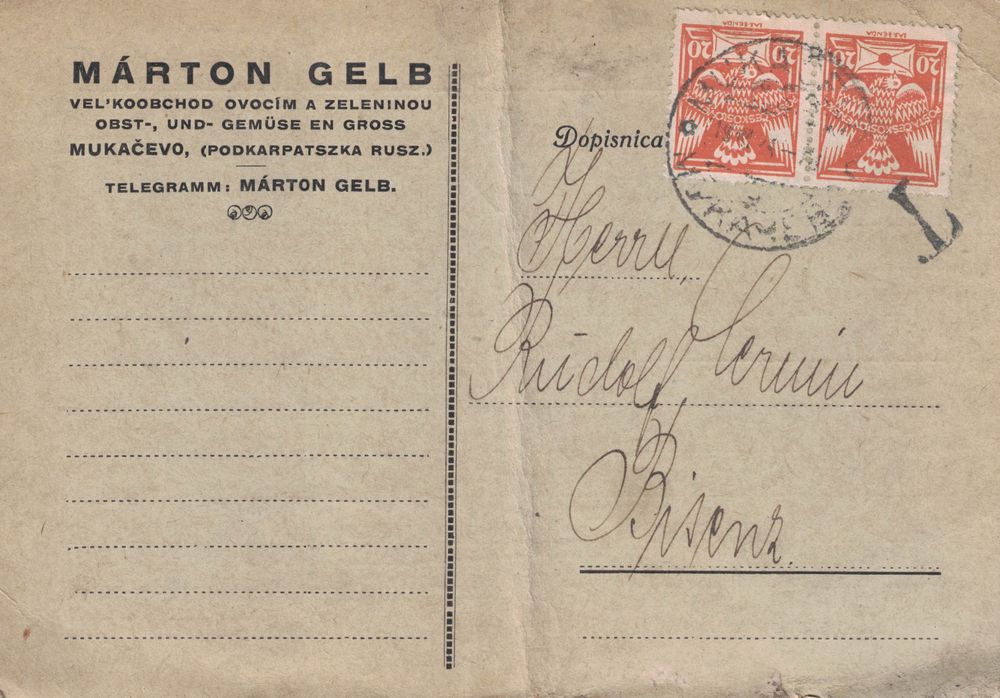 MÁRTON GELB
VEL'KOOBCHOD OVOCÍM A ZELENINOU
OBST-, UND- GEMÜSE EN GROSS
MUKAČEVO, (PODKARPATSZKA RUSZ.)
TELEGRAMM: MÁRTON GELB.
Dopisnica
20 20
20 20
L
Herrn,
Rudolf
Bisenz.